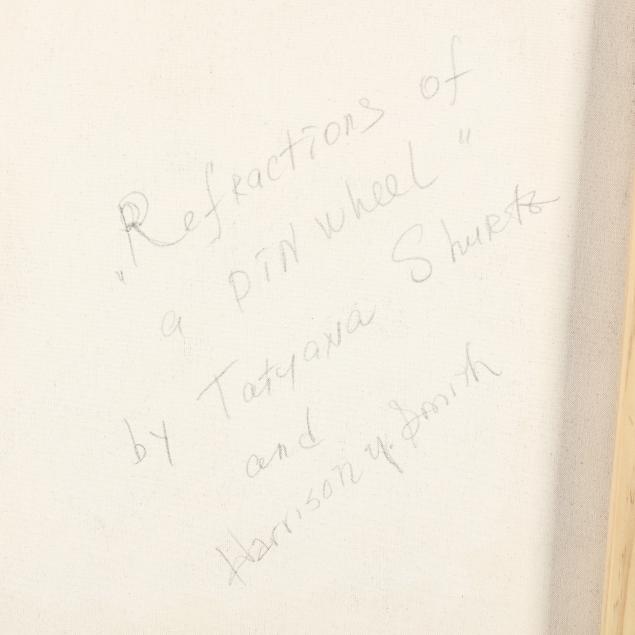 "Refractions of
a PiN wheel"
by Tatyana Shurtz
and
Harrison y. Smith